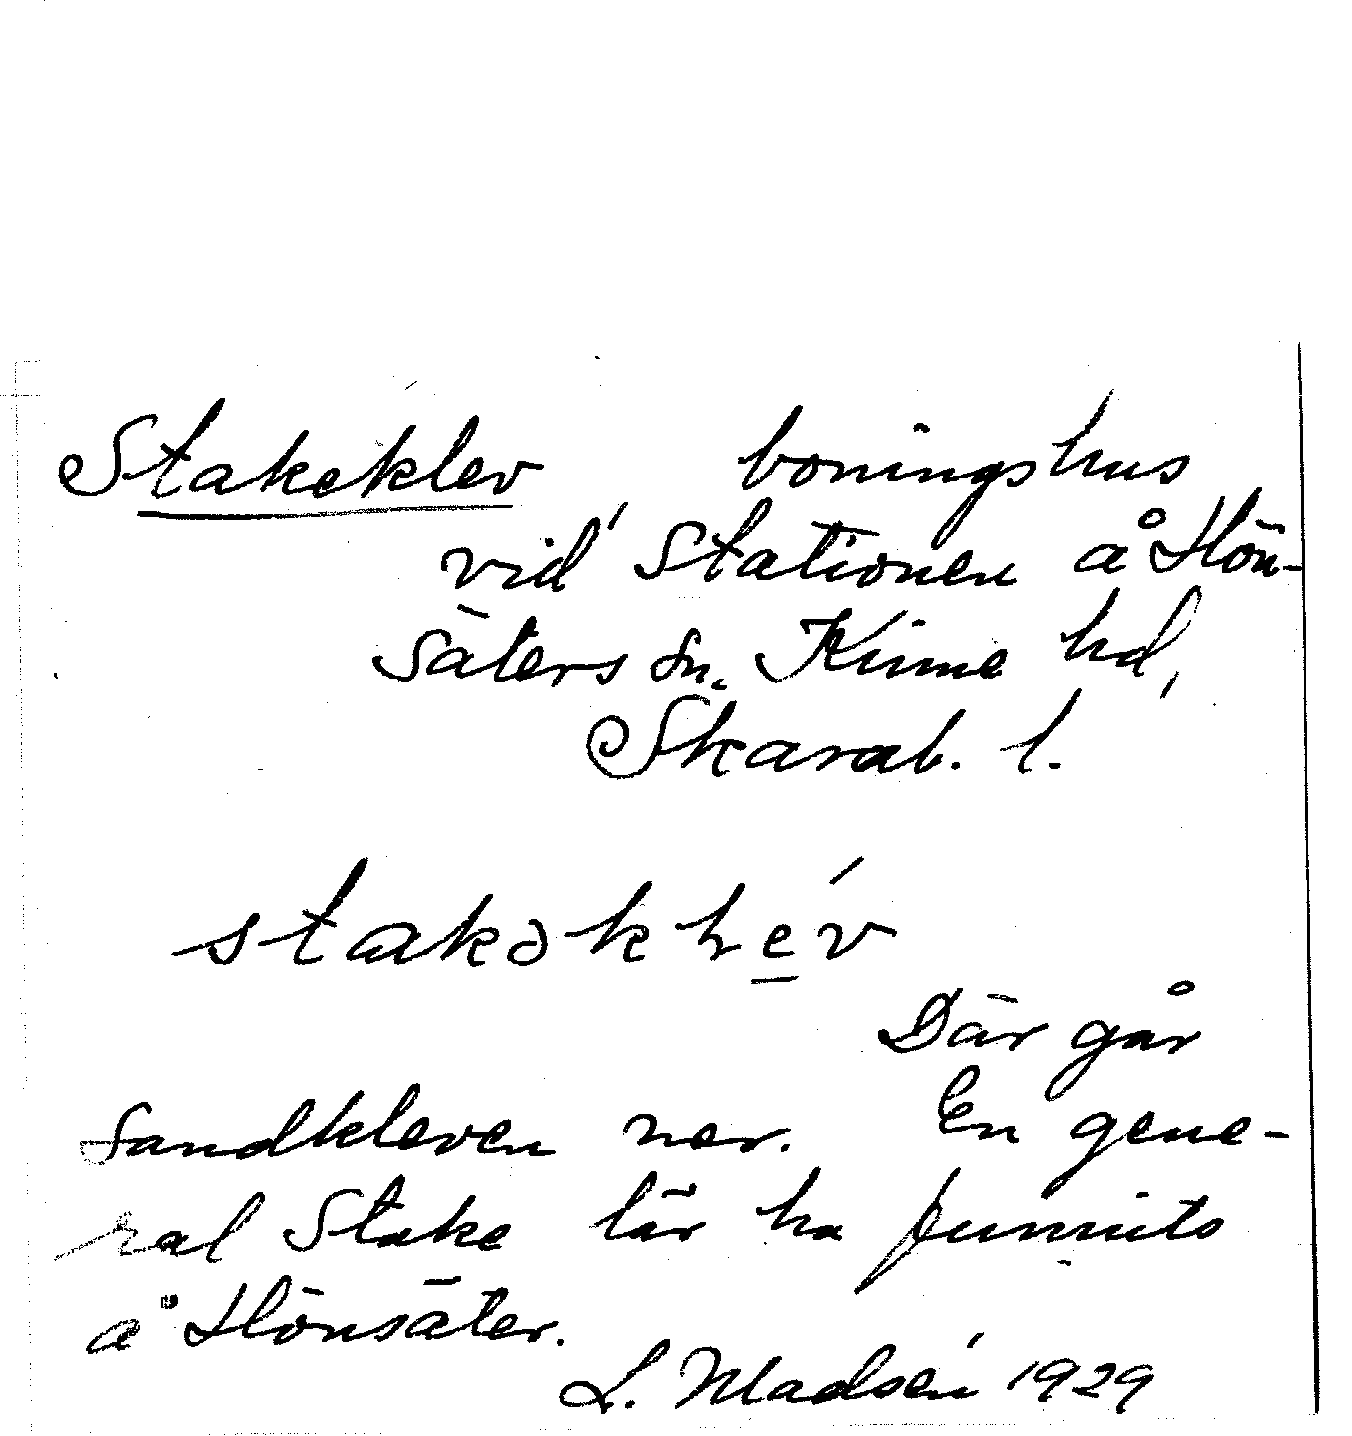 Stakeklev boningshus
vid Stationen å Hön-
säters sn. Kinne hd,
Skarab. l.
stakəkļev́
Där går
Sandkleven ner. En gene-
ral Stake lär ha funnits
å Hönsäter.
L. Madsén 1929